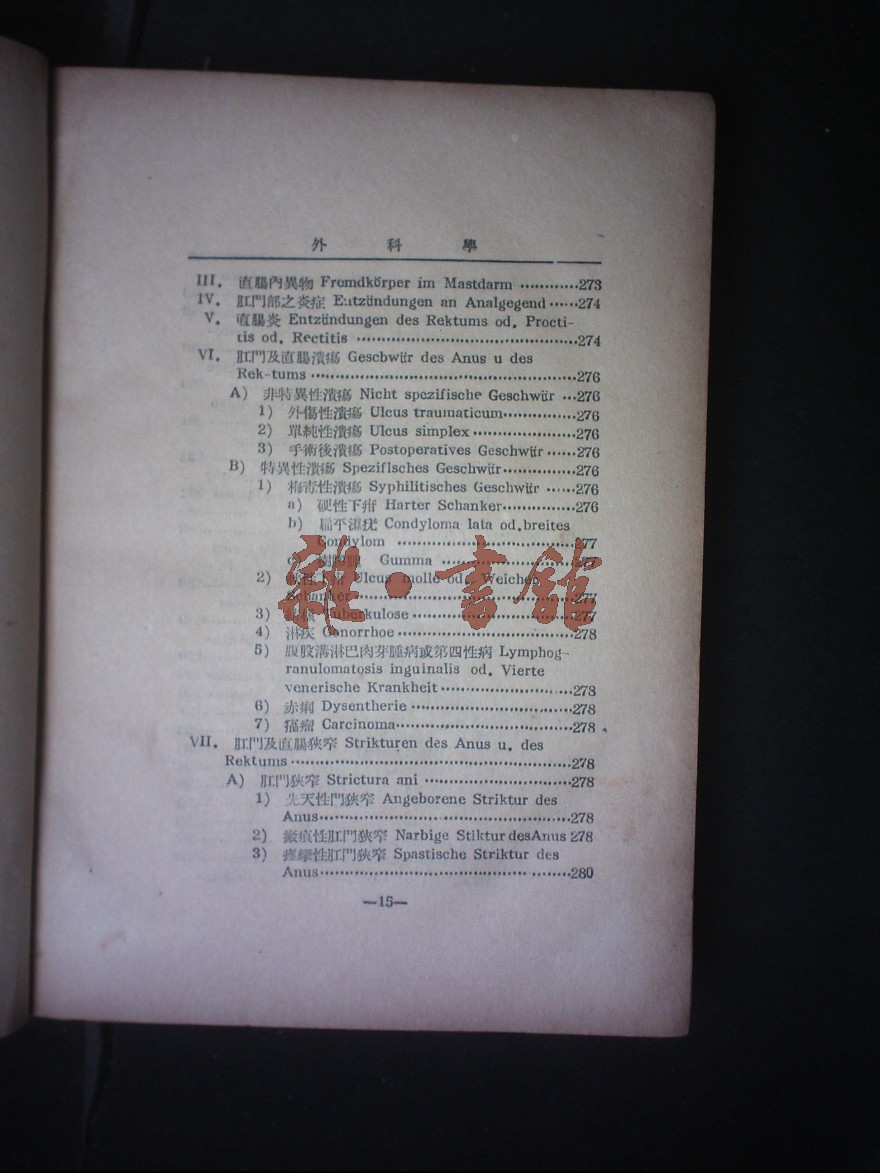 外 科 學
III. 直腸內異物 Fremdkörper im Mastdarm ············273
IV. 肛門部之炎症 Entzündungen an Analgegend ······274
V. 直腸炎 Entzündungen des Rektums od. Procti-
tis od. Rectitis ········································274
VI. 肛門及直腸潰瘍 Geschwür des Anus u des
Rek-tums ················································276
A) 非特異性潰瘍 Nicht spezifische Geschwür ···276
1) 外傷性潰瘍 Ulcus traumaticum·············276
2) 單純性潰瘍 Ulcus simplex··················276
3) 手術後潰瘍 Postoperatives Geschwür ······276
B) 特異性潰瘍 Spezifisches Geschwür·············276
1) 梅毒性潰瘍 Syphilitisches Geschwür ······276
a) 硬性下疳 Harter Schanker·············276
b) 扁平濕疣 Condyloma lata od.breites
Condylom ································277
Gumma ························277
2) Ulcus molle od. Weicher
Schanker········································277
3) Tuberkulose ······························277
4) 淋疾 Gonorrhoe································278
5) 腹股溝淋巴肉芽腫病或第四性病 Lymphog-
ranulomatosis inguinalis od. Vierte
venerische Krankheit························278
6) 赤痢 Dysentherie ······························278
7) 癌瘤 Carcinoma································278
VII. 肛門及直腸狹窄 Strikturen des Anus u. des
Rektums ···················································278
A) 肛門狹窄 Strictura ani ··························278
1) 先天性門狹窄 Angeborene Striktur des
Anus··············································278
2) 瘢痕性肛門狹窄 Narbige Stiktur desAnus 278
3) 痙攣性肛門狹窄 Spastische Striktur des
Anus··············································280
—15—
雜·書館